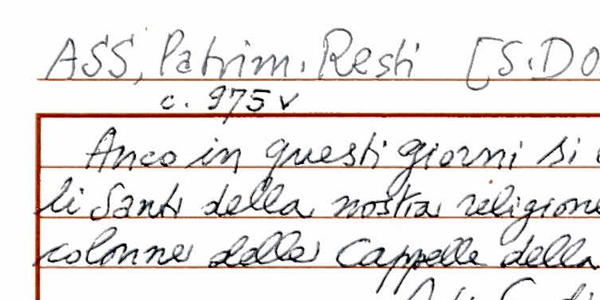 ASS, Patrim. Resti [S. DO
c. 975 v
Anco in questi giorni si
li Santi della nostra religione
colonne delle Cappelle della